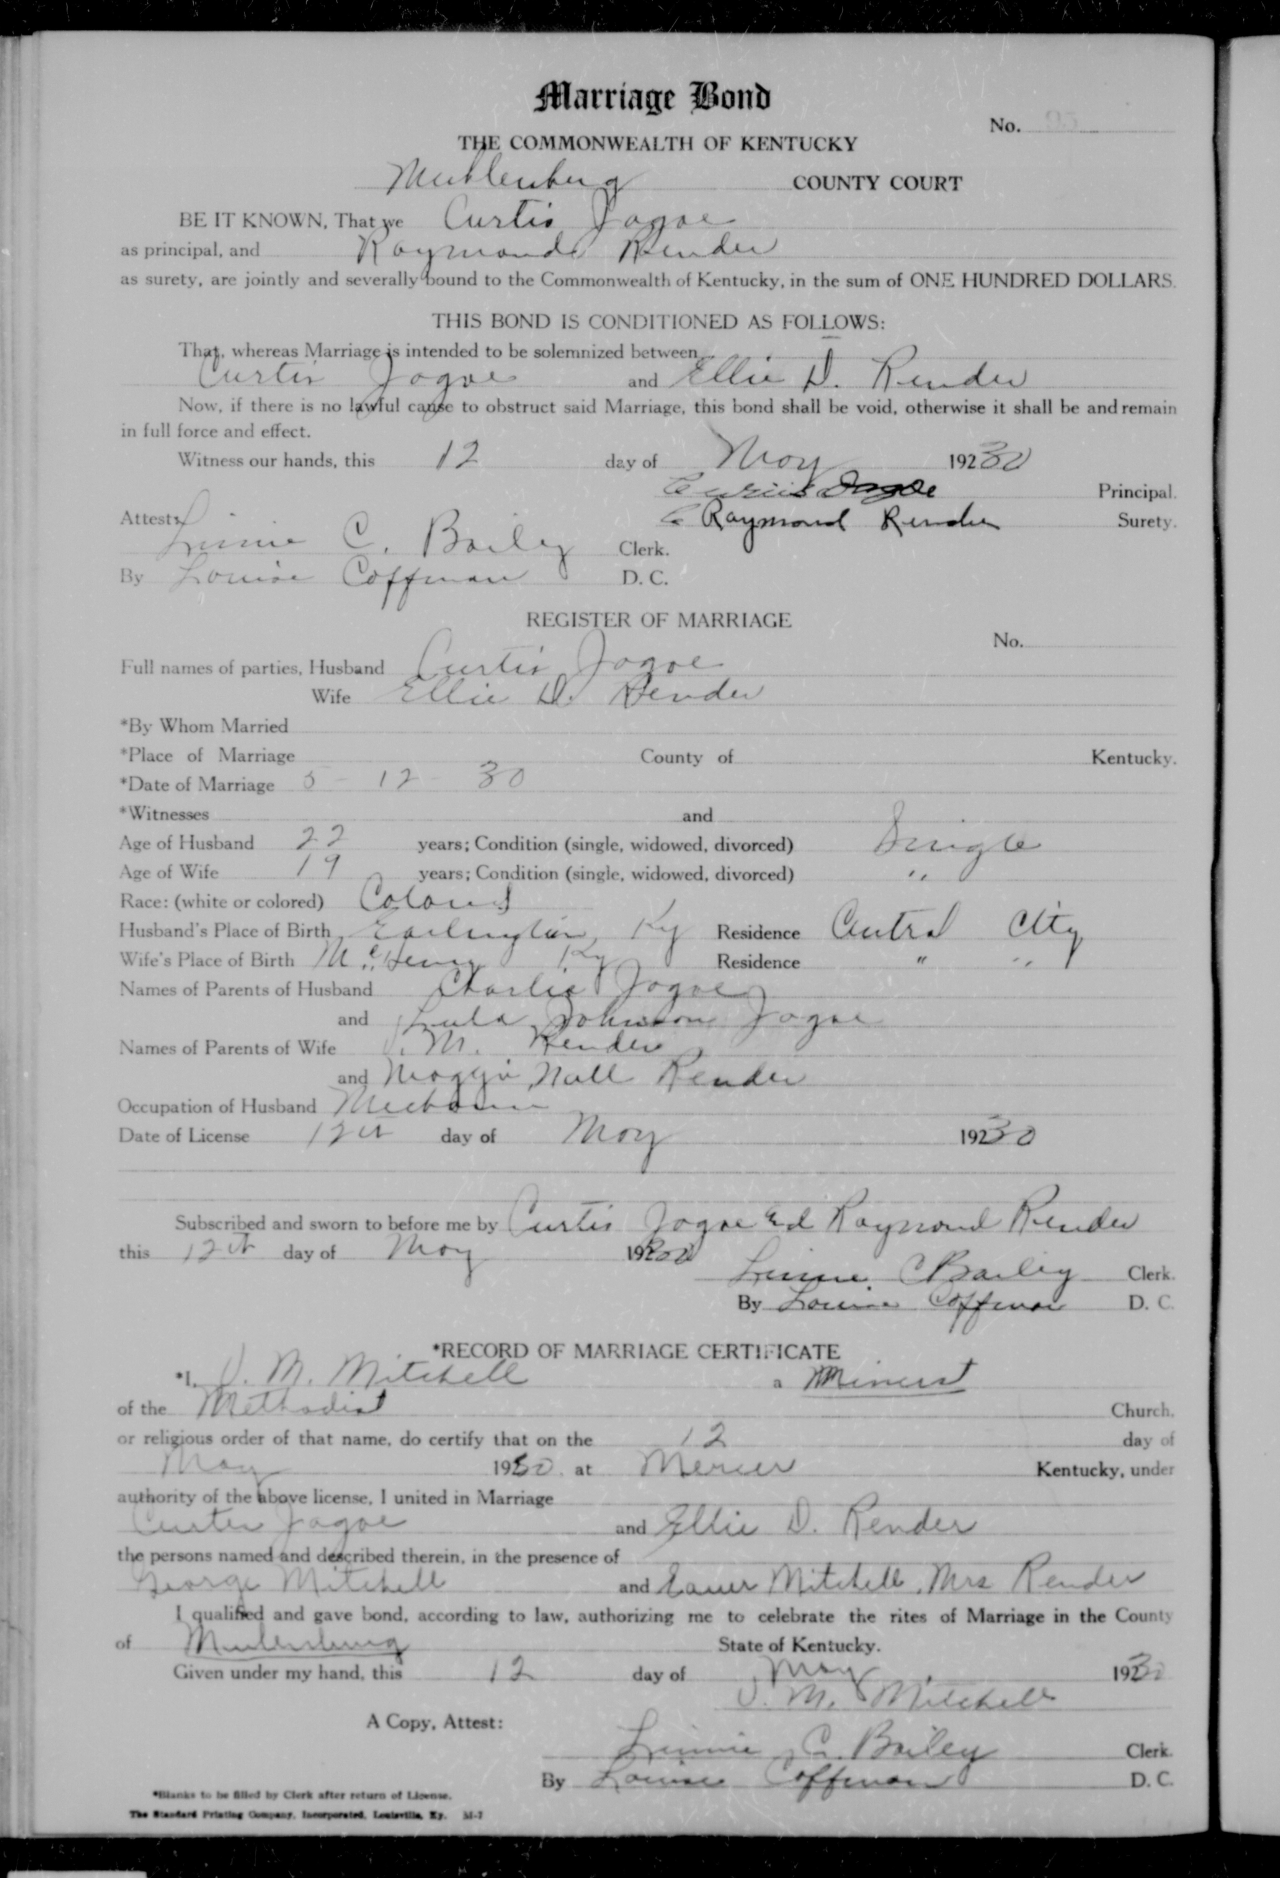 Marriage Bond
No. 93
THE COMMONWEALTH OF KENTUCKY
Muhlenberg COUNTY COURT
BE IT KNOWN, That we Curtis Jagoe
as principal, and Raymond Render
as surety, are jointly and severally bound to the Commonwealth of Kentucky, in the sum of ONE HUNDRED DOLLARS.
THIS BOND IS CONDITIONED AS FOLLOWS:
That, whereas Marriage is intended to be solemnized between
Curtis Jagoe and Ellie D. Render
Now, if there is no lawful cause to obstruct said Marriage, this bond shall be void, otherwise it shall be and remain
in full force and effect.
Witness our hands, this 12 day of May 19230
Curtis Jagoe Principal.
Raymond Render Surety.
Attest:
Linnie C. Bailey Clerk.
By Louise Coffman D. C.
REGISTER OF MARRIAGE
No.
Full names of parties, Husband Curtis Jagoe
Wife Ellie D. Render
*By Whom Married
*Place of Marriage County of Kentucky.
*Date of Marriage 5 - 12 - 30
*Witnesses and
Age of Husband 22 years; Condition (single, widowed, divorced) Single
Age of Wife 19 years; Condition (single, widowed, divorced) "
Race: (white or colored) Colored
Husband's Place of Birth Earlington, Ky Residence Central City
Wife's Place of Birth McHenry Ky Residence " "
Names of Parents of Husband Charlie Jagoe
and Lula Johnson Jagoe
Names of Parents of Wife J. M. Render
and Maggie Nall Render
Occupation of Husband Mechanic
Date of License 12th day of May 19230
Subscribed and sworn to before me by Curtis Jagoe and Raymond Render
this 12th day of May 19230
Linnie C Bailey Clerk.
By Louise Coffman D. C.
*RECORD OF MARRIAGE CERTIFICATE
*I, J. M. Mitchell a Minerst
of the Methodist Church,
or religious order of that name, do certify that on the 12 day of
May 1930, at Mercer Kentucky, under
authority of the above license, I united in Marriage
Curtis Jagoe and Ellie D. Render
the persons named and described therein, in the presence of
George Mitchell and Mitchell, Mrs Render
I qualified and gave bond, according to law, authorizing me to celebrate the rites of Marriage in the County
of Mulenburg State of Kentucky.
Given under my hand, this 12 day of May, 19230
J. M. Mitchell
A Copy, Attest:
Linnie C. Bailey Clerk.
By Louise Coffman D. C.
*Blanks to be filled by Clerk after return of License.
The Standard Printing Company, Incorporated, Louisville, Ky. M-7